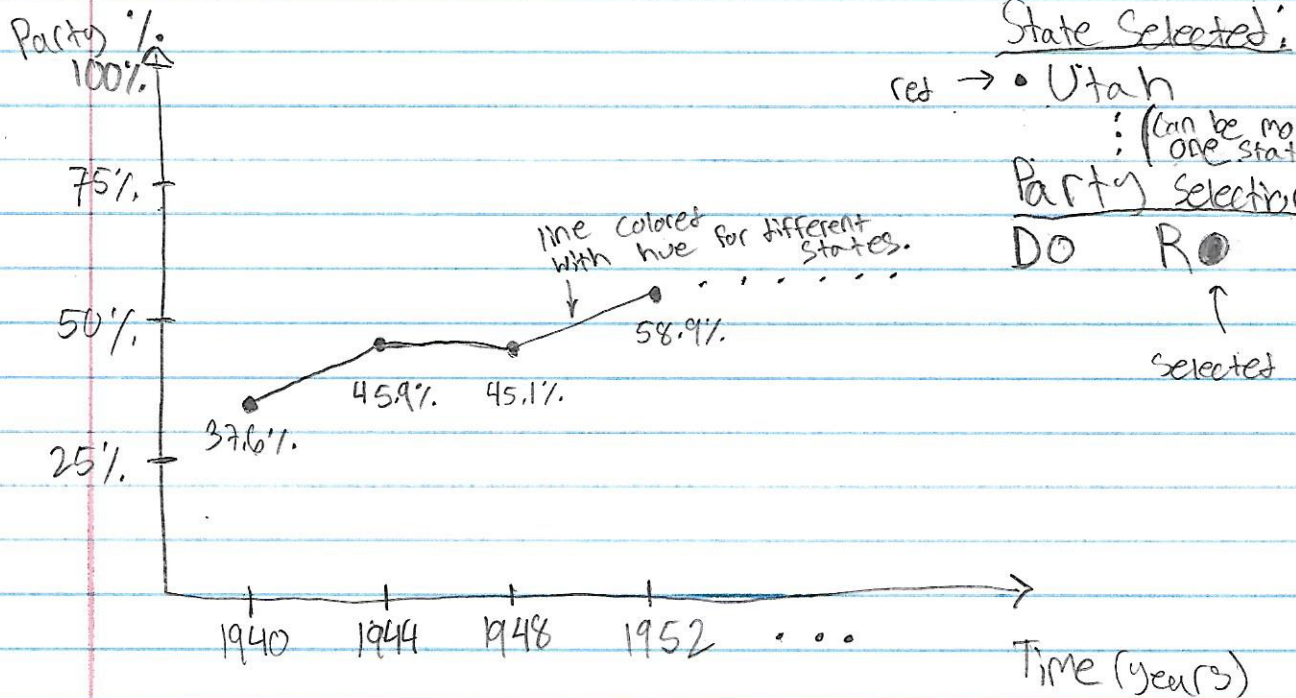 Party %
100%
75%
50%
25%
37.6%
45.9%
45.1%
58.9%
line colored
with hue for different
states.
1940 1944 1948 1952 . . .
Time (years)
State Selected:
red → • Utah
(Can be mo
one stat
Party Selection
D O R
Selected